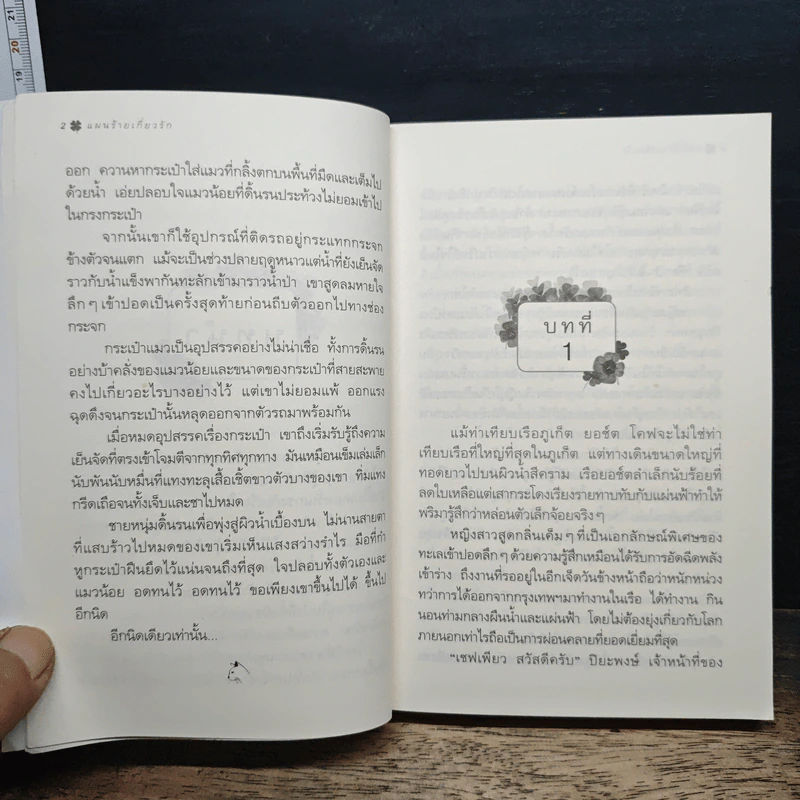 21
20
19
2 แผนร้ายเกี่ยวรัก
ออก ควานหากระเป๋าใส่แมวที่กลิ้งตกบนพื้นที่มืดและเต็มไป
ด้วยน้ำ เอ่ยปลอบใจแมวน้อยที่ดิ้นรนประท้วงไม่ยอมเข้าไป
ในกรงกระเป๋า
จากนั้นเขาก็ใช้อุปกรณ์ที่ติดรถอยู่กระแทกกระจก
ข้างตัวจนแตก แม้จะเป็นช่วงปลายฤดูหนาวแต่น้ำที่ยังเย็นจัด
ราวกับน้ำแข็งพากันทะลักเข้ามาราวน้ำป่า เขาสูดลมหายใจ
ลึกๆ เข้าปอดเป็นครั้งสุดท้ายก่อนถีบตัวออกไปทางช่อง
กระจก
กระเป๋าแมวเป็นอุปสรรคอย่างไม่น่าเชื่อ ทั้งการดิ้นรน
อย่างบ้าคลั่งของแมวน้อยและขนาดของกระเป๋าที่สายสะพาย
คงไปเกี่ยวอะไรบางอย่างไว้ แต่เขาไม่ยอมแพ้ ออกแรง
ฉุดดึงจนกระเป๋านั้นหลุดออกจากตัวรถมาพร้อมกัน
เมื่อหมดอุปสรรคเรื่องกระเป๋า เขาถึงเริ่มรับรู้ถึงความ
เย็นจัดที่ตรงเข้าโจมตีจากทุกทิศทุกทาง มันเหมือนเข็มเล่มเล็ก
นับพันนับหมื่นที่แทงทะลุเสื้อเชิ้ตขาวตัวบางของเขา ทิ่มแทง
กรีดเถือจนทั้งเจ็บและชาไปหมด
ชายหนุ่มดิ้นรนเพื่อพุ่งสู่ผิวน้ำเบื้องบน ไม่นานสายตา
ที่แสบร้าวไปหมดของเขาเริ่มเห็นแสงสว่างรำไร มือที่กำ
หูกระเป๋าฝืนยึดไว้แน่นจนถึงที่สุด ใจปลอบทั้งตัวเองและ
แมวน้อย อดทนไว้ อดทนไว้ ขอเพียงเขาขึ้นไปได้ ขึ้นไป
อีกนิด
อีกนิดเดียวเท่านั้น...
บทที่
1
แม้ท่าเทียบเรือภูเก็ต ยอช์ต โคฟจะไม่ใช่ท่า
เทียบเรือที่ใหญ่ที่สุดในภูเก็ต แต่ทางเดินขนาดใหญ่ที่
ทอดยาวไปบนผิวน้ำสีคราม เรือยอช์ตลำเล็กนับร้อยที่
ลดใบเหลือแต่เสากระโดงเรียงรายทาบทับกับแผ่นฟ้าทำให้
พริมารู้สึกว่าหล่อนตัวเล็กจ้อยจริงๆ
หญิงสาวสูดกลิ่นเค็มๆ ที่เป็นเอกลักษณ์พิเศษของ
ทะเลเข้าปอดลึกๆ ด้วยความรู้สึกเหมือนได้รับการอัดฉีดพลัง
เข้าร่าง ถึงงานที่รออยู่ในอีกเจ็ดวันข้างหน้าถือว่าหนักหน่วง
ทว่าการได้ออกจากกรุงเทพฯ มาทำงานในเรือ ได้ทำงาน กิน
นอนท่ามกลางผืนน้ำและแผ่นฟ้า โดยไม่ต้องยุ่งเกี่ยวกับโลก
ภายนอกเท่าไรถือเป็นการผ่อนคลายที่ยอดเยี่ยมที่สุด
“เชฟเพียว สวัสดีครับ” ปิยะพงษ์ เจ้าหน้าที่ของ